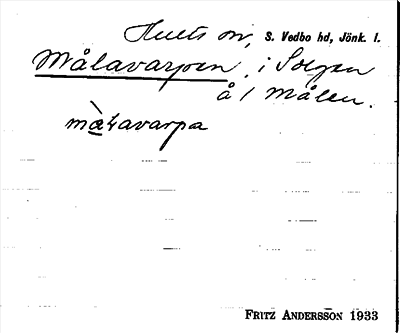 Hults sn, S. Vedbo hd, Jönk. l.
Målavarpen, i Solgen
å 1 Målen.
màlavarpa
FRITZ ANDERSSON 1933